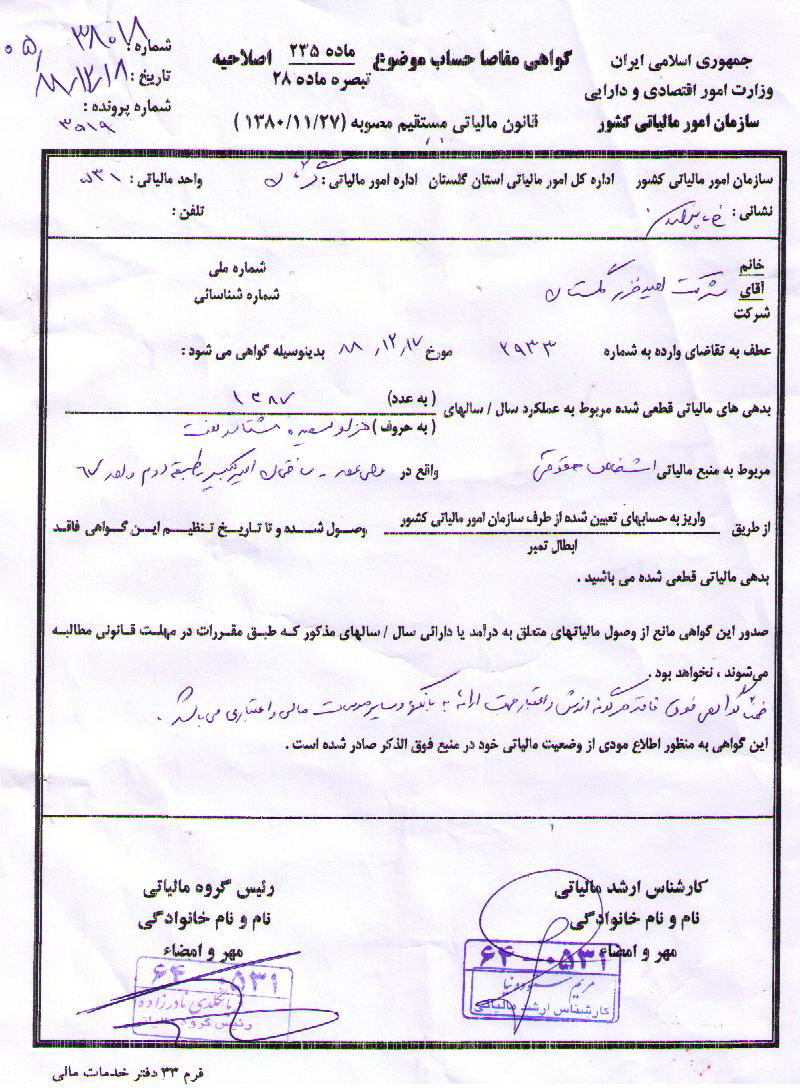 جمهوری اسلامی ایران
وزارت امور اقتصادی و دارایی
سازمان امور مالیاتی کشور
گواهی مفاصا حساب موضوع ماده ۲۳۵ اصلاحیه
تبصره ماده ۲۸
قانون مالیاتی مستقیم مصوبه (۱۳۸۰/۱۱/۲۷)
شماره: ۳۸۰۱۸
تاریخ: ۸۸/۱۲/۱۸
شماره پرونده:
۳۵۱۹
سازمان امور مالیاتی کشور اداره کل امور مالیاتی استان گلستان اداره امور مالیاتی: واحد مالیاتی: ۵۳۱
نشانی: تلفن:
خانم
آقای شرکت امید خزر گلستان
شرکت
شماره ملی
شماره شناسائی
عطف به تقاضای وارده به شماره ۲۹۳۳ مورخ ۸۸/۱۲/۱۷ بدینوسیله گواهی می شود:
بدهی های مالیاتی قطعی شده مربوط به عملکرد سال / سالهای (به عدد) ۱۳۸۷
(به حروف) هزار و سیصد و هشتاد و هفت
مربوط به منبع مالیاتی اشخاص حقوقی واقع در ساختمان امیرکبیر طبقه دوم واحد ۶۷
از طریق واریز به حسابهای تعیین شده از طرف سازمان امور مالیاتی کشور وصول شده و تا تاریخ تنظیم این گواهی فاقد
ابطال تمبر
بدهی مالیاتی قطعی شده می باشید.
صدور این گواهی مانع از وصول مالیاتهای متعلق به درآمد یا دارائی سال / سالهای مذکور که طبق مقررات در مهلت قانونی مطالبه
می‌شوند، نخواهد بود.
ضمنا گواهی فوق فاقد هرگونه ارزش و اعتبار جهت ارائه به بانکها و سایر موسسات مالی و اعتباری می باشد.
این گواهی به منظور اطلاع مودی از وضعیت مالیاتی خود در منبع فوق الذکر صادر شده است.
کارشناس ارشد مالیاتی
نام و نام خانوادگی
مهر و امضاء
۶۴-۰۵۳۱
مریم
کارشناس ارشد مالیاتی
رئیس گروه مالیاتی
نام و نام خانوادگی
مهر و امضاء
۶۴ ۰۵۳۱
نادرزاده
رئیس گروه مالیاتی
فرم ۳۳ دفتر خدمات مالی